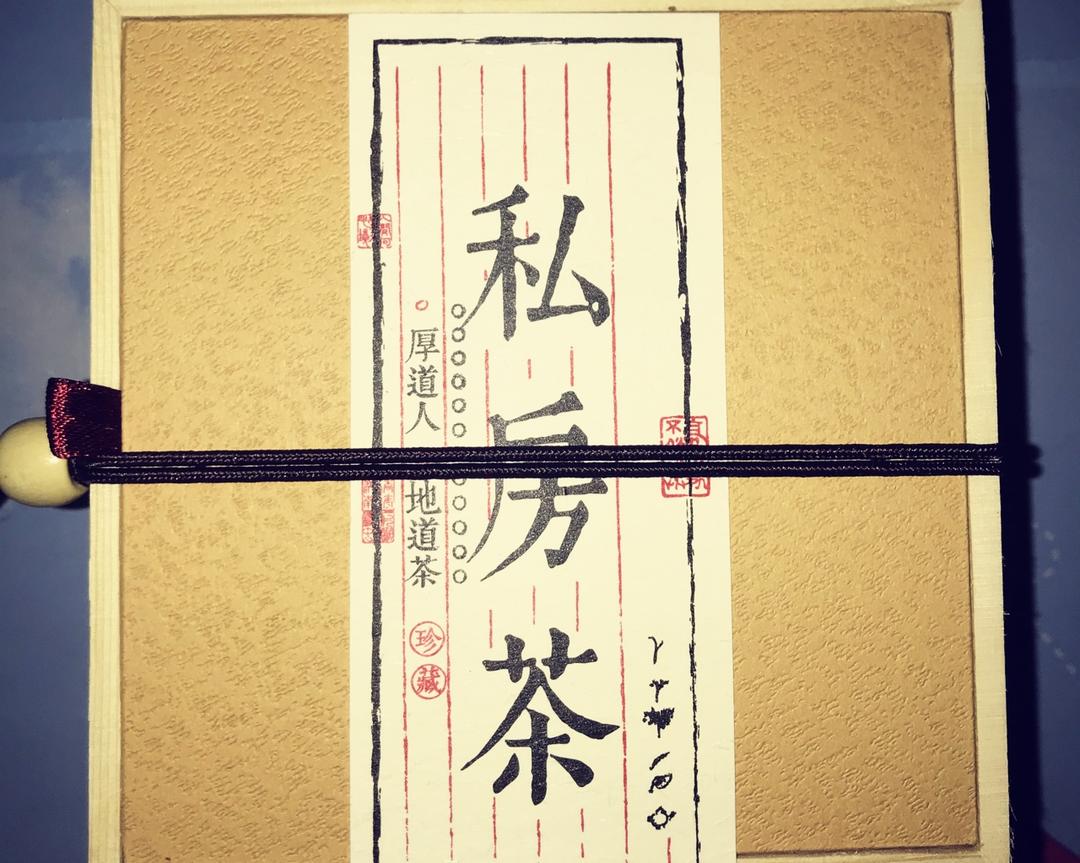 私房茶
厚道人
地道茶
珍藏